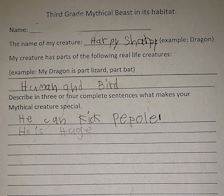 Third Grade Mythical Beast in its habitat.
Name:
The name of my creature: Harpy Sharpy (example: Dragon)
My creature has parts of the following real life creatures:
(example: My Dragon is part lizard, part bat)
Human and Bird
Describe in three or four complete sentences what makes your
Mythical creature special.
He can kick pepole!
He is Huge